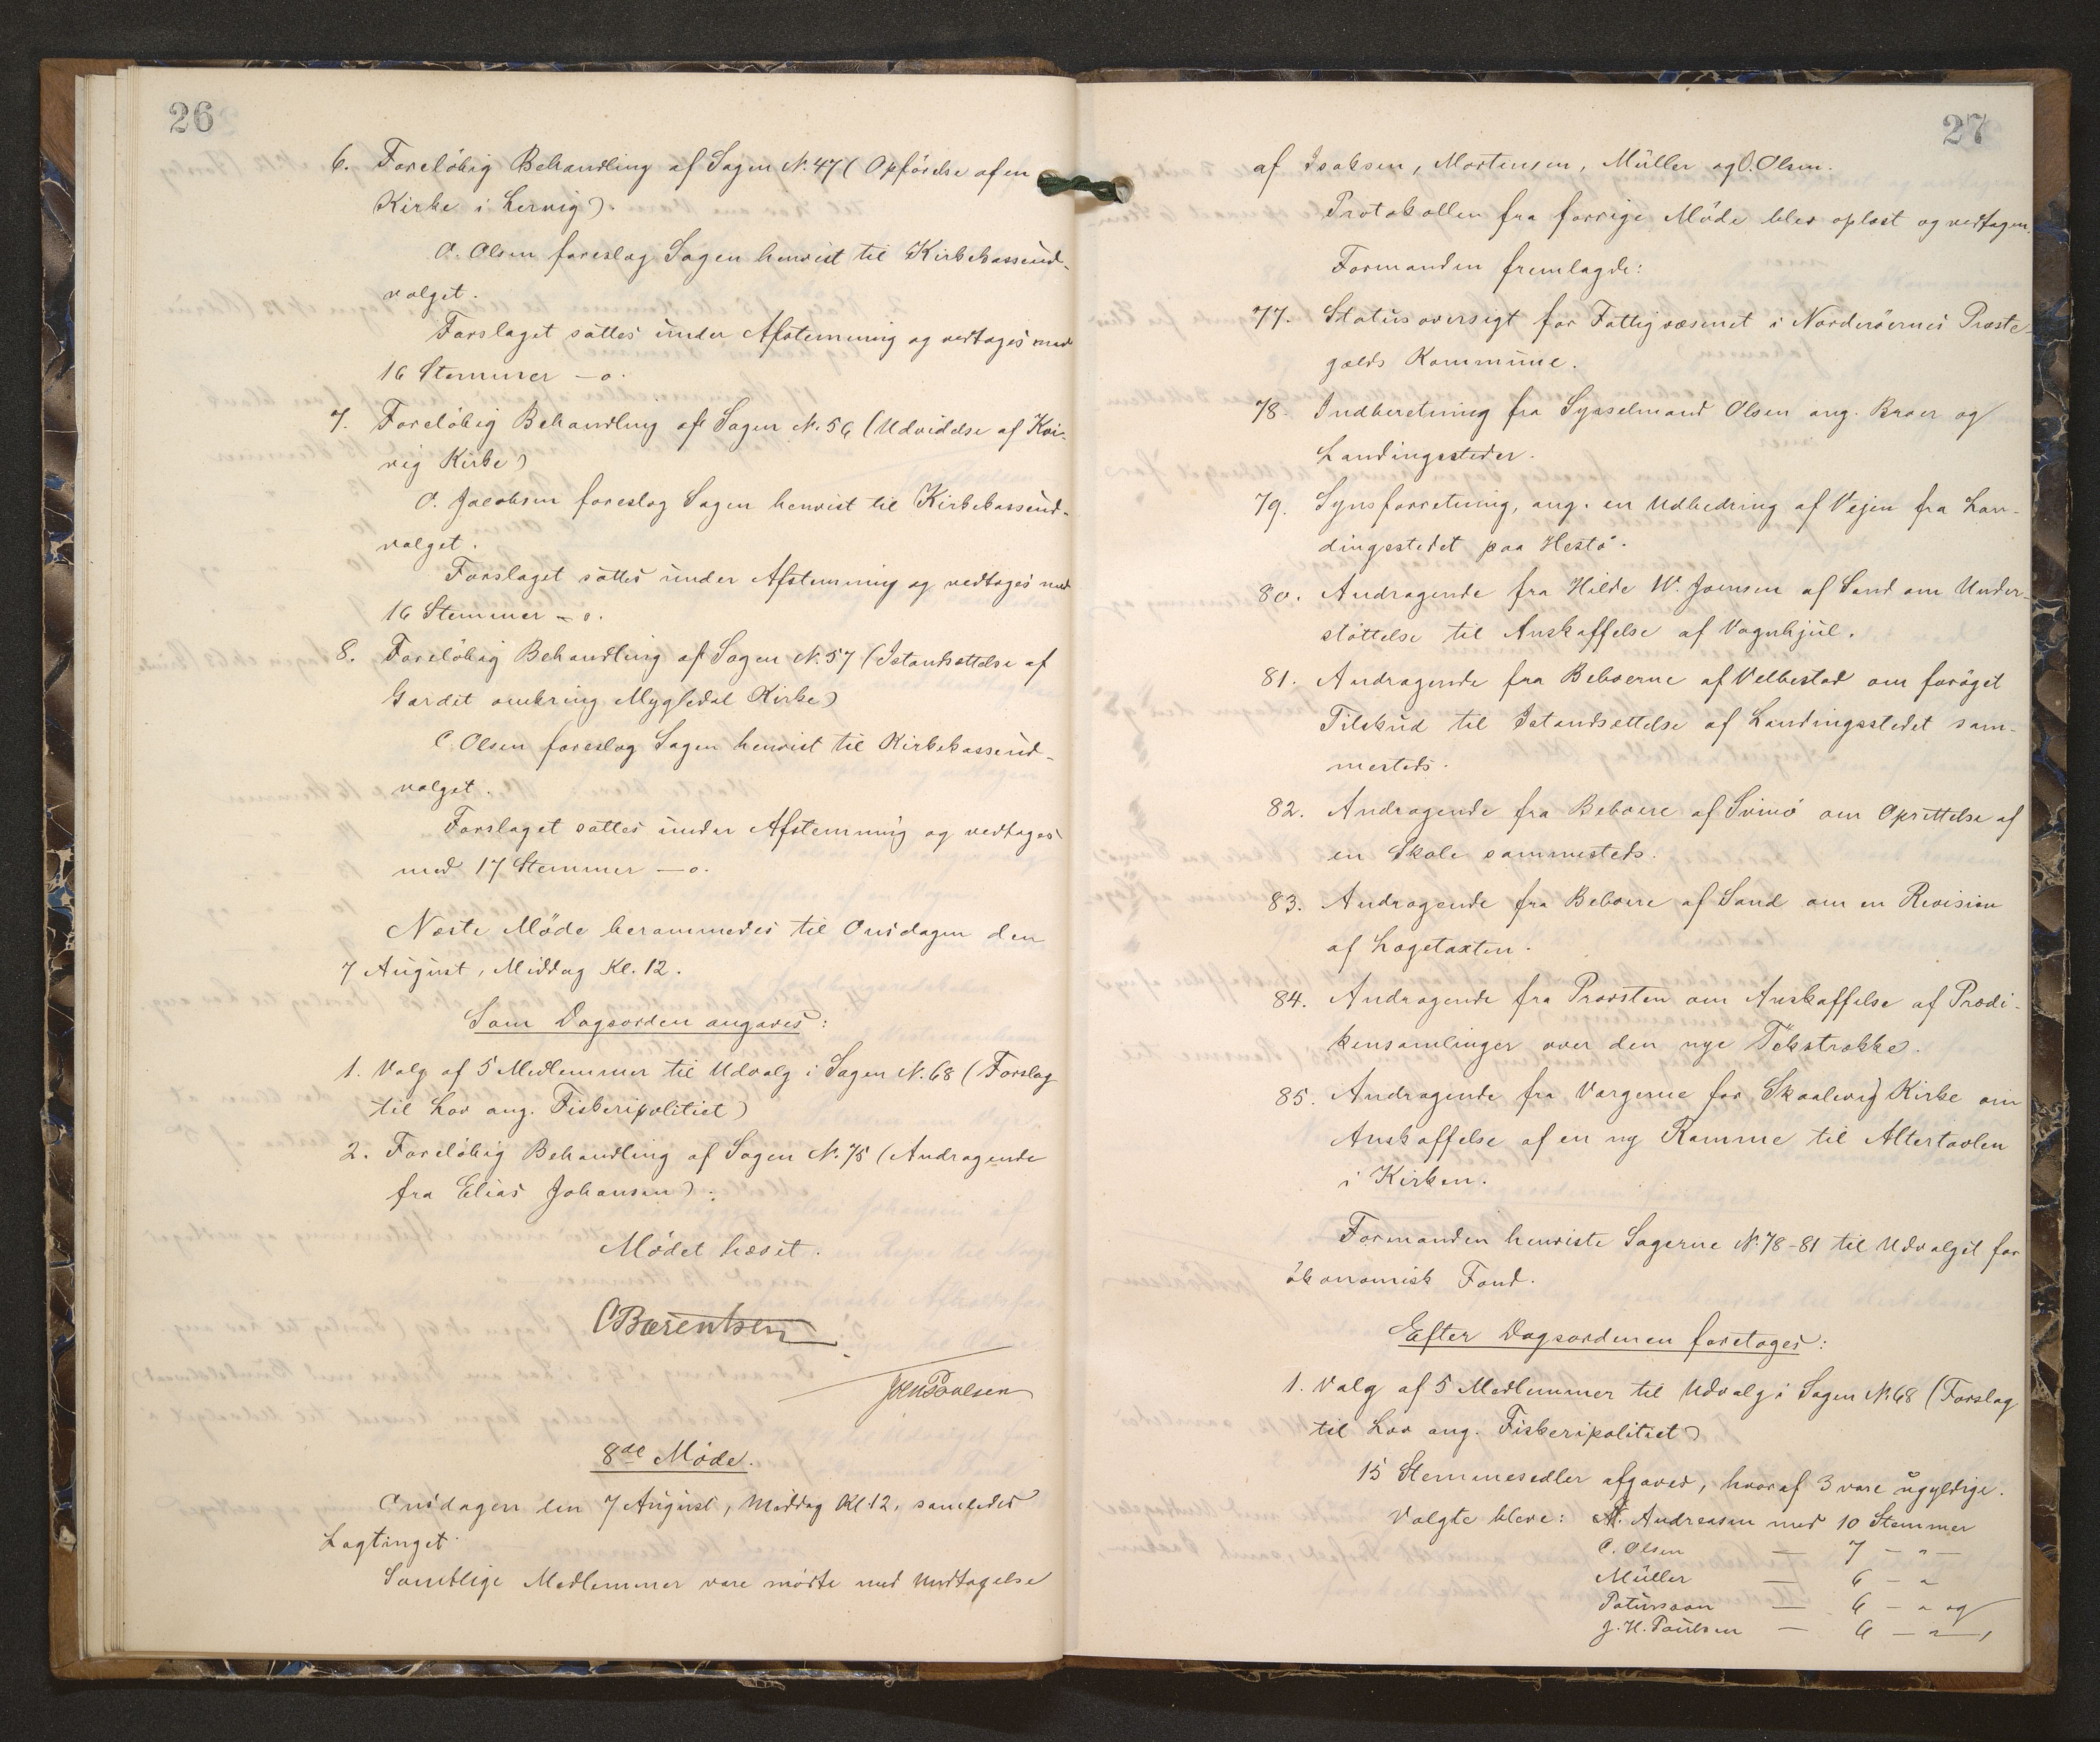 26
6. Foreløbig Behandling af Sagen N. 47 (Opførelse af en
Kirke i Lervig).
O. Olsen foreslog Sagen henvist til Kirkekasseud-
valget.
Forslaget sattes under Afstemning og vedtoges med
16 Stemmer – o.
7. Foreløbig Behandling af Sagen N. 56 (Udvidelse af Kvi-
vig Kirke)
O. Jacobsen foreslog Sagen henvist til Kirkekasseud-
valget.
Forslaget sattes under Afstemning og vedtoges med
16 Stemmer – o.
8. Foreløbig Behandling af Sagen N. 57 (Istandsættelse af
Gardet omkring Mygledal Kirke)
C. Olsen foreslog Sagen henvist til Kirkekasseud-
valget.
Forslaget sattes under Afstemning og vedtoges
med 17 Stemmer – o.
Næste Møde berammedes til Onsdagen den
7 August, Middag Kl. 12.
Som Dagsorden angaves:
1. Valg af 5 Medlemmer til Udvalg i Sagen N. 68 (Forslag
til Lov ang. Fiskeripolitiet)
2. Foreløbig Behandling af Sagen N. 75 (Andragende
fra Elias Johansen).
Mødet hævet.
CBærentsen
Joen Poulsen
8de Møde.
Onsdagen den 7 August, Middag Kl. 12, samledes
Lagtinget.
Samtlige Medlemmer vare mødte med Undtagelse
27
af Isaksen, Mortensen, Müller og O. Olsen.
Protokollen fra forrige Møde blev oplæst og vedtagen.
Formanden fremlagde:
77. Statusoversigt for Fattigvæsenet i Norderøernes Præste-
gælds Kommune.
78. Indberetning fra Sysselmand Olsen ang. Broer og
Landingssteder.
79. Synsforretning, ang. en Udbedring af Vejen fra Lan-
dingsstedet paa Hestø.
80. Andragende fra Hilde W. Joensen af Sand om Under-
støttelse til Anskaffelse af Vognhjul.
81. Andragende fra Beboerne af Velbestad om forøget
Tilskud til Istandsættelse af Landingsstedet sam-
mesteds.
82. Andragende fra Beboere af Svinø om Oprettelse af
en Skole sammesteds.
83. Andragende fra Beboere af Sand om en Revision
af Lægetaxten.
84. Andragende fra Provsten om Anskaffelse af Prædi-
kensamlinger over den nye Tekstrække.
85. Andragende fra Værgerne for Skaalevig Kirke om
Anskaffelse af en ny Ramme til Altertavlen
i Kirken.
Formanden henviste Sagerne N. 78-81 til Udvalget for
økonomisk Fond.
Efter Dagsordenen foretoges:
1. Valg af 5 Medlemmer til Udvalg i Sagen N. 68 (Forslag
til Lov ang. Fiskeripolitiet)
15 Stemmesedler afgaves, hvoraf 3 vare ugyldige.
Valgte bleve: A. Andreasen med 10 Stemmer
C. Olsen — 7 – " –
Müller — 6 – "
Patursson — 6 – " og
J. H. Poulsen — 6 – " –,